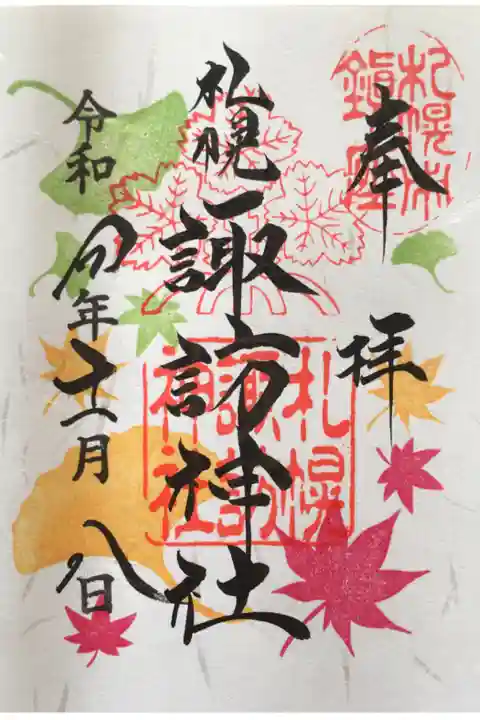 奉拝
札幌市
鎮座
札幌諏訪神社
札幌
諏訪
神社
令和四年十一月八日